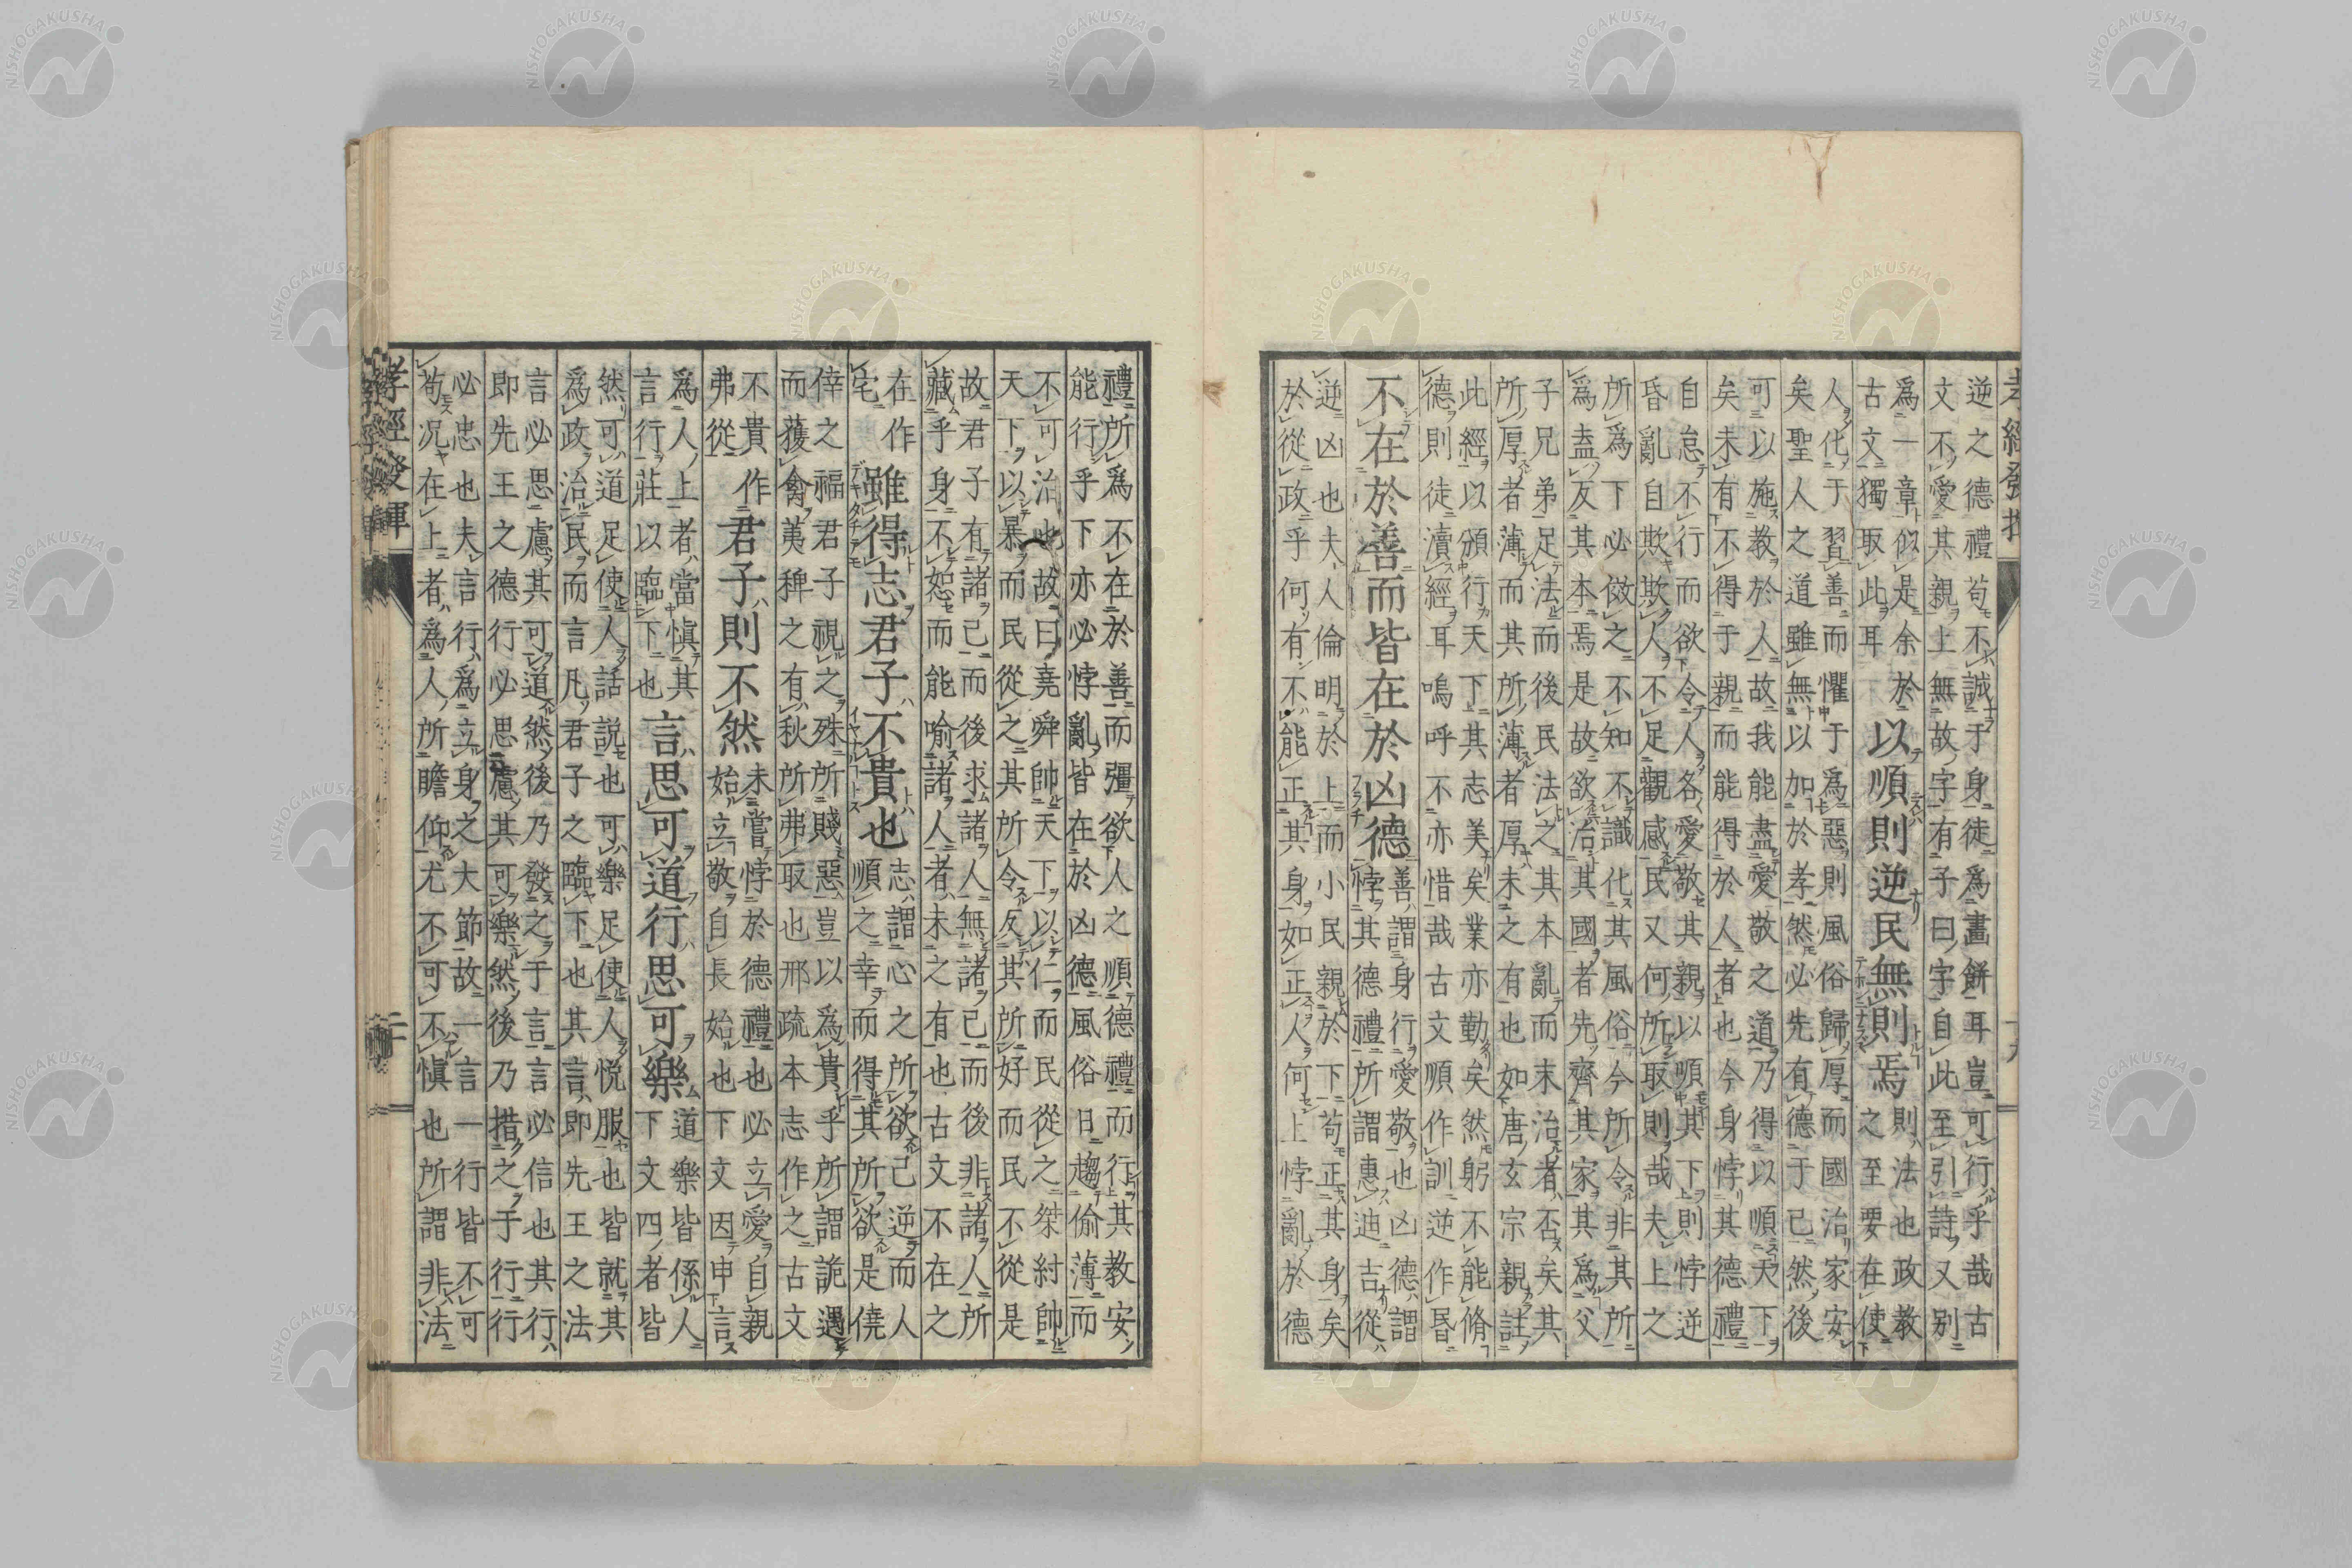 孝經發揮
逆之德禮苟不誠于身徒爲畫餅耳豈可行乎哉古
文不愛其親上無故字有子曰字自此至引詩又別
爲一章似是余於
古文獨取此耳
以順則逆民無則焉
則法也政教
之至要在使
人化于習善而懼于爲惡則風俗歸厚而國治家安
矣聖人之道雖無以加於孝然必先有德于己然後
可以施教於人故我能盡愛敬之道乃得以順天下
矣未有不得于親而能得於人者也今身悖其德禮
自怠不行而欲令人各愛敬其親以順其下則悖逆
昏亂自欺欺人不足觀感民又何所取則哉夫上之
所爲下必倣之不知不識化其風俗今所令非其所
爲盍反其本焉是故欲治其國者先齊其家其爲父
子兄弟足法而後民法之其本亂而末治者否矣其
所厚者薄而其所薄者厚未之有也如唐玄宗親註
此經以頒行天下其志美矣業亦勤矣然躬不能脩
德則徒瀆經耳嗚呼不亦惜哉古文順作訓逆作昏
不在於善而皆在於凶德
善謂身行愛敬也凶德謂
悖其德禮所謂惠迪吉從
逆凶也夫人倫明於上而小民親於下苟正其身矣
於從政乎何有不能正其身如正人何上悖亂於德
禮所爲不在於善而彊欲人之順德禮而行其教安
能行乎下亦必悖亂皆在於凶德風俗日趨偷薄而
不可治也故曰堯舜帥天下以仁而民從之桀紂帥
天下以暴而民從之其所令反其所好而民不從是
故君子有諸己而後求諸人無諸己而後非諸人所
藏乎身不恕而能喻諸人者未之有也古文不在之
在作
宅
雖得志君子不貴也
志謂心之所欲己逆而人
順之幸而得其所欲是僥
倖之福君子視之殊所賤惡豈以爲貴乎所謂詭遇
而獲禽荑稗之有秋所弗取也邢疏本志作之古文
不貴作
弗從
君子則不然
未嘗悖於德禮也必立愛自親
始立敬自長始也下文因申言
爲人上者當愼其
言行莊以臨下也
言思可道行思可樂
道樂皆係人
下文四者皆
然可道足使人話說也可樂足使人悅服也皆就其
爲政治民而言凡君子之臨下也其言即先王之法
言必思慮其可道然後乃發之于言言必信也其行
即先王之德行必思慮其可樂然後乃措之于行行
必忠也夫言行爲立身之大節故一言一行皆不可
苟况在上者爲人所瞻仰尤不可不愼也所謂非法
孝經發揮
NISHOGAKUSHA